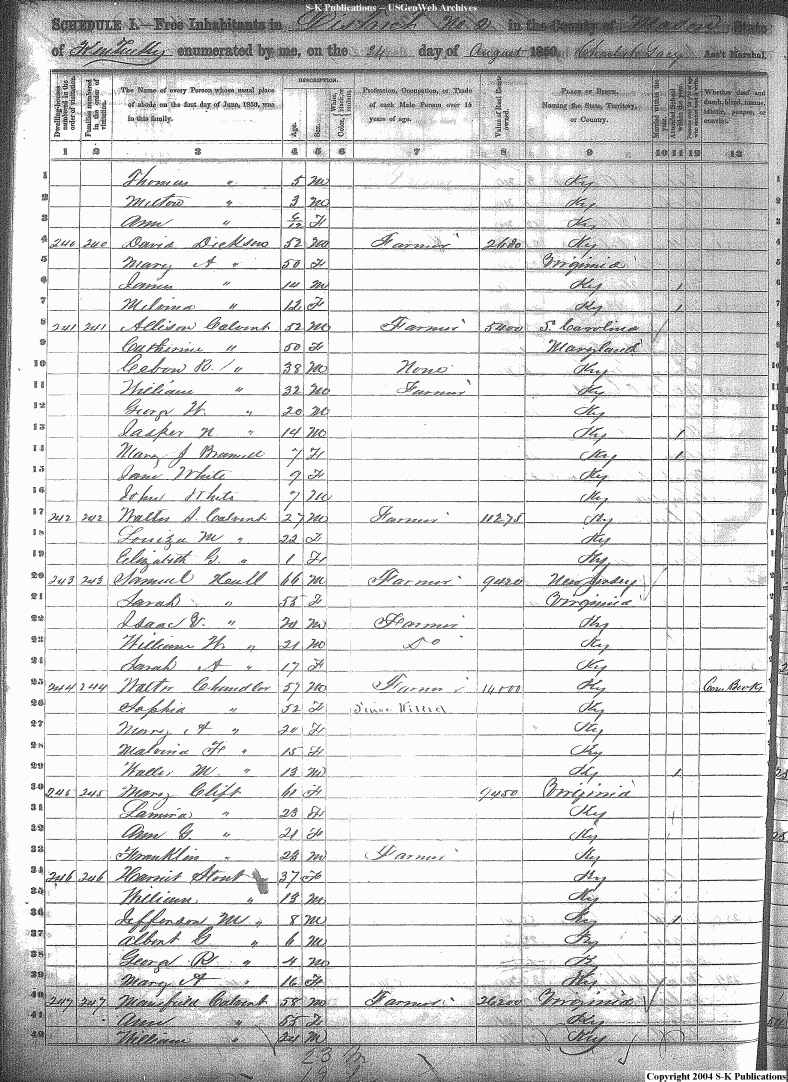 S-K Publications -- USGenWeb Archives
SCHEDULE I.—Free Inhabitants in District No. 2 in the County of Mason State
of Kentucky enumerated by me, on the 24 day of August 1850. Ass't Marshal.
Dwelling-houses numbered in the order of visitation.
Families numbered in the order of visitation.
The Name of every Person whose usual place of abode on the first day of June, 1850, was in this family.
DESCRIPTION.
Age.
Sex.
Color,
Profession, Occupation, or Trade of each Male Person over 15 years of age.
Value of Real Estate owned
PLACE OF BIRTH. Naming the State, Territory, or Country.
Married within the year.
Attended School within the year.
Whether deaf and dumb, blind, insane, idiotic, pauper, or convict.
1 2 3 4 5 6 7 8 9 10 11 12 13
1 Thomas " 5 M Ky
2 Milton " 3 M Ky
3 Ann " 6/12 F Ky
4 240 240 David Dickson 52 M Farmer 2680 Ky
5 Mary A " 50 F Virginia
6 James " 14 M Ky 1
7 Melvina " 12 F Ky 1
8 241 241 Allison Calvert 52 M Farmer 5400 S. Carolina
9 Catherine " 50 F Maryland
10 Cebon R. " 38 M None Ky
11 William " 32 M Farmer Ky
12 George W. " 20 M Ky
13 Jasper N " 14 M Ky 1
14 Mary J Bramell 7 F Ky 1
15 Jane White 9 F Ky
16 John White 7 M Ky
17 242 242 Walter S. Calvert 27 M Farmer 11275 Ky
18 Louiza M " 22 F Ky
19 Elizabeth G. " 1 F Ky
20 243 243 Samuel 66 M Farmer 9420 New Jersey
21 Sarah " 55 F Virginia
22 Isaac V. " 24 M Farmer Ky
23 William W. " 21 M Do Ky
24 Sarah A " 17 F Ky
25 244 244 Walter Chandler 57 M Farmer 14000 Ky
26 Sophia " 52 F Ky
27 Mary A " 20 F Ky
28 Malvina F " 15 F Ky
29 Walter M. " 13 M Ky 1
30 245 245 Mary Clift 60 F 9450 Virginia
31 Lamira " 23 F Ky
32 Ann G. " 21 F Ky
33 Franklin " 23 M Farmer Ky
34 246 246 Harriet Stout 37 F Ky
35 William " 13 M Ky
36 Jefferson M " 8 M Ky 1
37 Albert G " 6 M Ky
38 George R " 4 M Ky
39 Mary A " 16 F Ky
40 247 247 Mansfield Calvert 58 M Farmer 26200 Virginia
41 Ann " 55 F Ky
42 William " 24 M Ky
Copyright 2004 S-K Publications